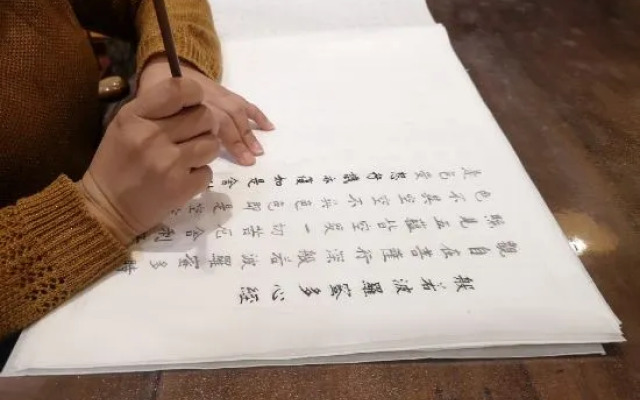 般若波羅蜜多心經
觀自在菩薩行深般若波羅蜜多時
照見五蘊皆空度一切苦厄舍利
色不異空空不異色色即是空
是色受想行識亦復如是舍